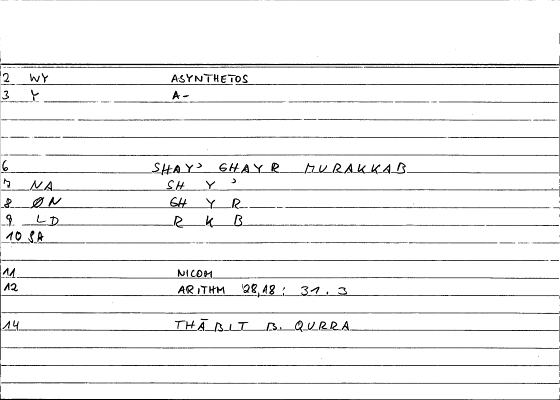 2 WY ASYNTHETOS
3 Y A-
6 SHAY' GHAYR MURAKKAB
7 NA SH Y '
8 ØN GH Y R
9 LD R K B
10 SA
11 NICOM
12 ARITHM 28,18 : 31. 3
14 THĀBIT B. QURRA